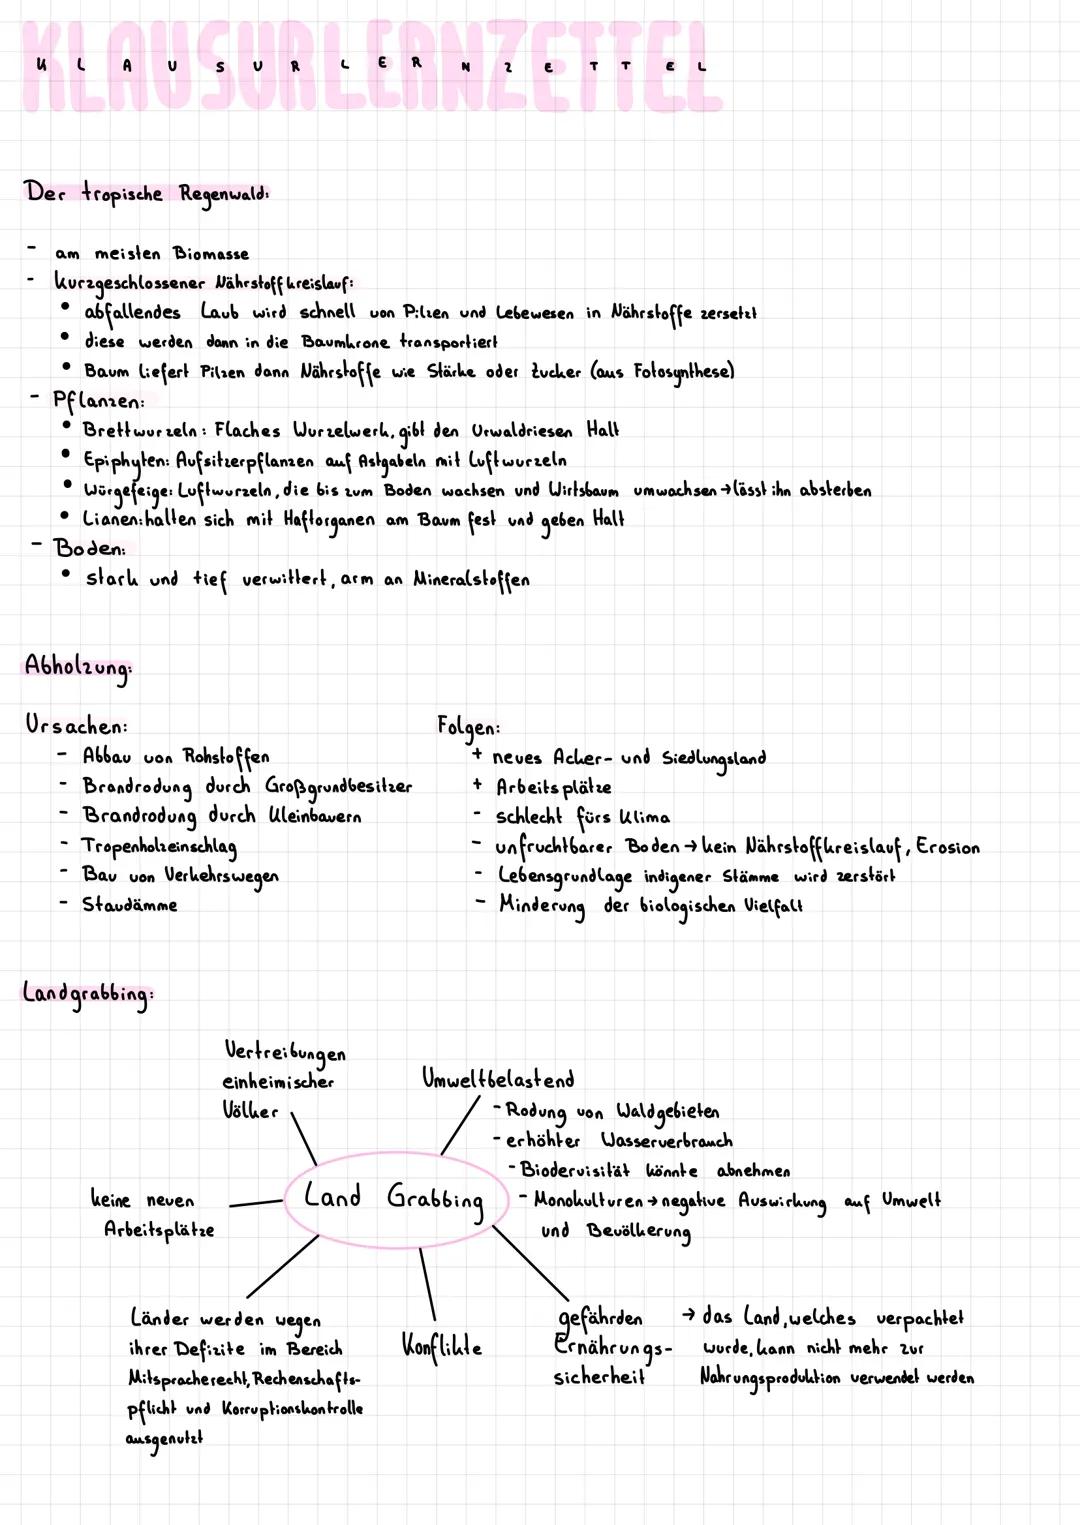 KLAUSURLERNZETTEL
K L A U S U R L E R N Z E T T E L
Der tropische Regenwald:
- am meisten Biomasse
- Kurzgeschlossener Nährstoffkreislauf:
• abfallendes Laub wird schnell von Pilzen und Lebewesen in Nährstoffe zersetzt
• diese werden dann in die Baumkrone transportiert
• Baum liefert Pilzen dann Nährstoffe wie Stärke oder Zucker (aus Fotosynthese)
- Pflanzen:
• Brettwurzeln: Flaches Wurzelwerk, gibt den Urwaldriesen Halt
• Epiphyten: Aufsitzerpflanzen auf Astgabeln mit Luftwurzeln
• Würgefeige: Luftwurzeln, die bis zum Boden wachsen und Wirtsbaum umwachsen → lässt ihn absterben
• Lianen: halten sich mit Haftorganen am Baum fest und geben Halt
- Boden:
• stark und tief verwittert, arm an Mineralstoffen
Abholzung:
Ursachen:
- Abbau von Rohstoffen
- Brandrodung durch Großgrundbesitzer
- Brandrodung durch Kleinbauern
- Tropenholzeinschlag
- Bau von Verkehrswegen
- Staudämme
Folgen:
+ neues Acker- und Siedlungsland
+ Arbeitsplätze
- schlecht fürs Klima
- unfruchtbarer Boden → kein Nährstoffkreislauf, Erosion
- Lebensgrundlage indigener Stämme wird zerstört
- Minderung der biologischen Vielfalt
Landgrabbing:
Vertreibungen
einheimischer
Völker
Umweltbelastend
- Rodung von Waldgebieten
- erhöhter Wasserverbrauch
- Biodervisität könnte abnehmen
- Monokulturen → negative Auswirkung auf Umwelt
und Bevölkerung
Land Grabbing
keine neuen
Arbeitsplätze
Länder werden wegen
ihrer Defizite im Bereich
Mitspracherecht, Rechenschafts-
pflicht und Korruptionskontrolle
ausgenutzt
Konflikte
gefährden
Ernährungs-
sicherheit
→ das Land, welches verpachtet
wurde, kann nicht mehr zur
Nahrungsproduktion verwendet werden